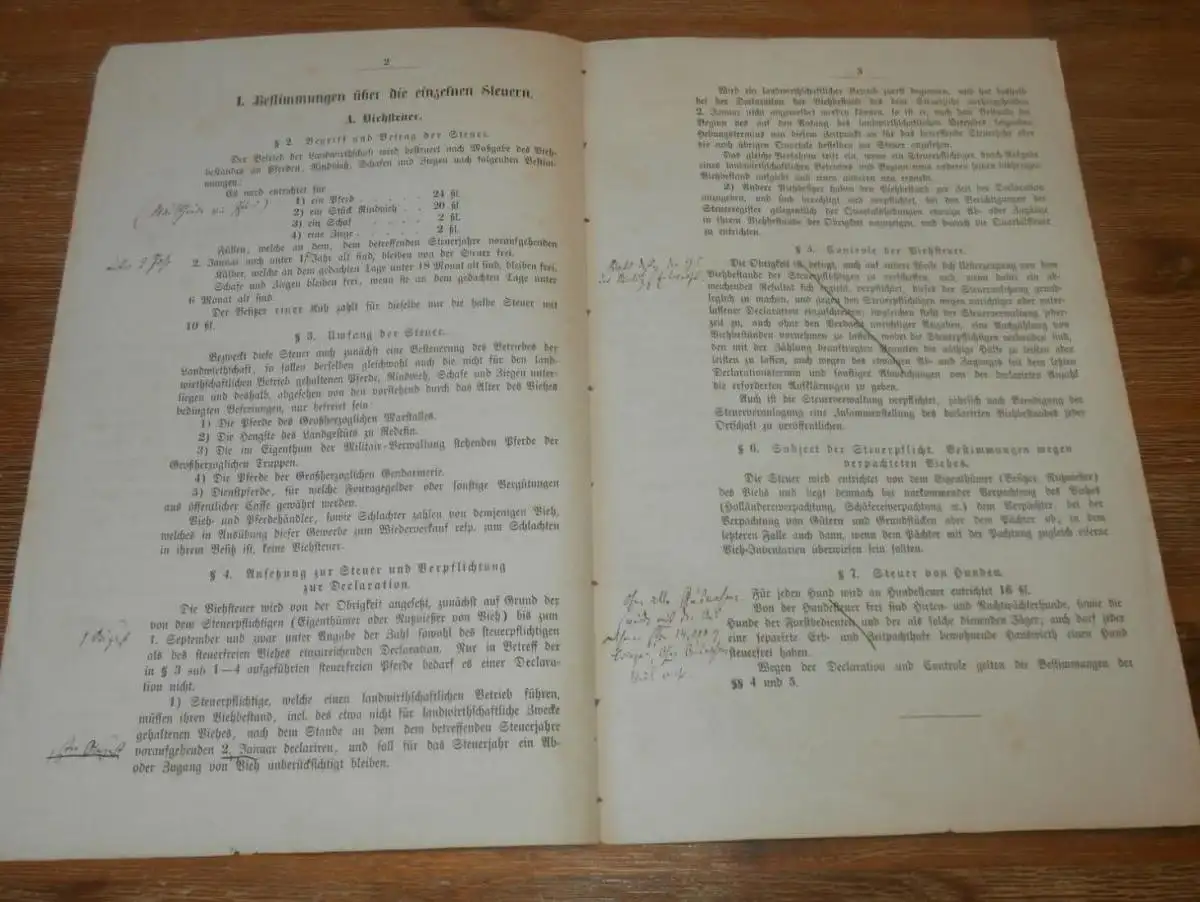 2
I. Bestimmungen über die einzelnen Steuern.
A. Viehsteuer.
§ 2. Begriff und Betrag der Steuer.
Der Betrieb der Landwirthschaft wird besteuert nach Maßgabe des Vieh-
bestandes an Pferden, Rindvieh, Schafen und Ziegen nach folgenden Bestim-
mungen:
Es wird entrichtet für
1) ein Pferd . . . . . 24 ßl.
2) ein Stück Rindvieh . . 20 ßl.
3) ein Schaf . . . . . 2 ßl.
4) eine Ziege . . . . . 2 ßl.
Füllen, welche an dem, dem betreffenden Steuerjahre voraufgehenden
2. Januar noch unter 1½ Jahr alt sind, bleiben von der Steuer frei.
Kälber, welche an dem gedachten Tage unter 18 Monat alt sind, bleiben frei.
Schafe und Ziegen bleiben frei, wenn sie an dem gedachten Tage unter
6 Monat alt sind.
Der Besitzer einer Kuh zahlt für dieselbe nur die halbe Steuer mit
10 ßl.
§ 3. Umfang der Steuer.
Bezweckt diese Steuer auch zunächst eine Besteuerung des Betriebes der
Landwirthschaft, so sollen derselben gleichwohl auch die nicht für den land-
wirthschaftlichen Betrieb gehaltenen Pferde, Rindvieh, Schafe und Ziegen unter-
liegen und deshalb, abgesehen von den vorstehend durch das Alter des Viehes
bedingten Befreiungen, nur befreiet sein:
1) Die Pferde des Großherzoglichen Marstalles.
2) Die Hengste des Landgestüts zu Redefin.
3) Die im Eigenthum der Militair-Verwaltung stehenden Pferde der
Großherzoglichen Truppen.
4) Die Pferde der Großherzoglichen Gendarmerie.
5) Dienstpferde, für welche Fouragegelder oder sonstige Vergütungen
aus öffentlicher Casse gewährt werden.
Vieh- und Pferdehändler, sowie Schlachter zahlen von demjenigen Vieh,
welches in Ausübung dieser Gewerbe zum Wiederverkauf resp. zum Schlachten
in ihrem Besitz ist, keine Viehsteuer.
§ 4. Ansetzung zur Steuer und Verpflichtung
zur Declaration.
Die Viehsteuer wird von der Obrigkeit angesetzt, zunächst auf Grund der
von dem Steuerpflichtigen (Eigenthümer oder Nutznießer von Vieh) bis zum
1. September und zwar unter Angabe der Zahl sowohl des steuerpflichtigen
als des steuerfreien Viehes einzureichenden Declaration. Nur in Betreff der
in § 3 sub 1—4 aufgeführten steuerfreien Pferde bedarf es einer Declara-
tion nicht.
1) Steuerpflichtige, welche einen landwirthschaftlichen Betrieb führen,
müssen ihren Viehbestand, incl. des etwa nicht für landwirthschaftliche Zwecke
gehaltenen Viehes, nach dem Stande an dem dem betreffenden Steuerjahr
voraufgehenden 2. Januar declariren, und soll für das Steuerjahr ein Ab-
oder Zugang von Vieh unberücksichtigt bleiben.
3
Wird ein landwirthschaftlicher Betrieb zuerst begonnen, und hat deshalb
bei der Declaration der Viehbestand des dem Steuerjahr vorhergehenden
2. Januar nicht angemeldet werden können, so ist er, nach dem Bestande bei
Beginn des auf den Anfang des landwirthschaftlichen Betriebes folgenden
Hebungstermins von diesem Zeitpunkt an für das betreffende Steuerjahr oder
die noch übrigen Quartale desselben zur Steuer anzusetzen.
Das gleiche Verfahren tritt ein, wenn ein Steuerpflichtiger durch Aufgabe
eines landwirthschaftlichen Betriebes und Beginn eines anderen seinen bisherigen
Viehbestand aufgiebt und einen anderen neu erwirbt.
2) Andere Viehbesitzer haben den Viehbestand zur Zeit der Declaration
anzugeben, und sind berechtigt und verpflichtet, bei den Berichtigungen der
Steuerregister gelegentlich der Quartalshebungen etwaige Ab- oder Zugänge
in ihrem Viehbestande der Obrigkeit anzuzeigen, und danach die Quartalsteuer
zu entrichten.
§ 5. Controle der Viehsteuer.
Die Obrigkeit ist befugt, auch auf andere Weise sich Ueberzeugung von dem
Viehbestande der Steuerpflichtigen zu verschaffen, und wenn dabei ein ab-
weichendes Resultat sich ergiebt, verpflichtet, dieses der Steueransetzung grund-
leglich zu machen, und gegen den Steuerpflichtigen wegen unrichtiger oder unter-
lassener Declaration einzuschreiten; imgleichen steht der Steuerverwaltung jeder-
zeit zu, auch ohne den Verdacht unrichtiger Angaben, eine Nachzählung von
Viehbeständen vornehmen zu lassen, wobei die Steuerpflichtigen verbunden sind,
den mit der Zählung beauftragten Beamten die nöthige Hülfe zu leisten oder
leisten zu lassen, auch wegen des etwaigen Ab- und Zuganges seit dem letzten
Declarationstermin und sonstiger Abweichungen von der declarirten Anzahl
die erforderten Aufklärungen zu geben.
Auch ist die Steuerverwaltung verpflichtet, jährlich nach Beendigung der
Steuerveranlagung eine Zusammenstellung des declarirten Viehbestandes jeder
Ortschaft zu veröffentlichen.
§ 6. Subject der Steuerpflicht. Bestimmungen wegen
verpachteten Viehes.
Die Steuer wird entrichtet von dem Eigenthümer (Besitzer, Nutznießer)
des Viehs und liegt demnach bei vorkommender Verpachtung des Viehes
(Holländereiverpachtung, Schäfereiverpachtung ꝛc.) dem Verpächter, bei der
Verpachtung von Gütern und Grundstücken aber dem Pächter ob, in dem
letzteren Falle auch dann, wenn dem Pächter mit der Pachtung zugleich eiserne
Vieh-Inventarien überwiesen sein sollten.
§ 7. Steuer von Hunden.
Für jeden Hund wird an Hundesteuer entrichtet 16 ßl.
Von der Hundesteuer frei sind Hirten- und Nachtwächterhunde, sowie die
Hunde der Forstbedienten und der als solche dienenden Jäger, auch darf jeder
eine separirte Erb- und Zeitpachthufe bewohnende Hauswirth einen Hund
steuerfrei haben.
Wegen der Declaration und Controle gelten die Bestimmungen der
§§ 4 und 5.